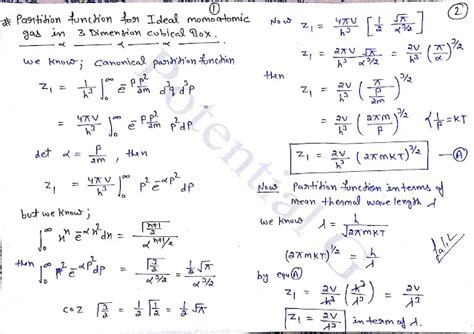 ①
# Partition function for Ideal monoatomic
gas in 3 Dimension cubical Box.
we know; canonical partition function
Z₁ = 1/h³ ∫₀^∞ e^(-βp²/2m) d³q d³p
= 4πV/h³ ∫₀^∞ e^(-βp²/2m) p² dp
Let α = β/2m, then
Z₁ = 4πV/h³ ∫₀^∞ p² e^(-αp²) dp
but we know;
∫₀^∞ xⁿ e^(-αx²) dx = Γ((n+1)/2) / α^((n+1)/2)
then ∫₀^∞ p² e^(-αp²) dp = Γ(3/2) / α^(3/2) = 1/2 √π / α^(3/2)
coz Γ(3/2) = 1/2 Γ(1/2) = 1/2 √π
②
Now Z₁ = 4πV/h³ [1/2 √π/α^(3/2)]
Z₁ = 2πV/h³ √π/α^(3/2) = 2V/h³ (π/α)^(3/2)
then
Z₁ = 2V/h³ (π / (β/2m))^(3/2)
= 2V/h³ (2πm/β)^(3/2) { 1/β = KT
Z₁ = 2V/h³ (2πmKT)^(3/2) — Ⓐ
Now Partition function in terms of
mean thermal wave length λ
we know; λ = h/√(2πmKT)
(2πmKT)^(1/2) = h/λ
by eqⁿ Ⓐ
Z₁ = 2V/h³ (h³/λ³) = 2V/λ³
Z₁ = 2V/λ³ in term of λ.
Potential G